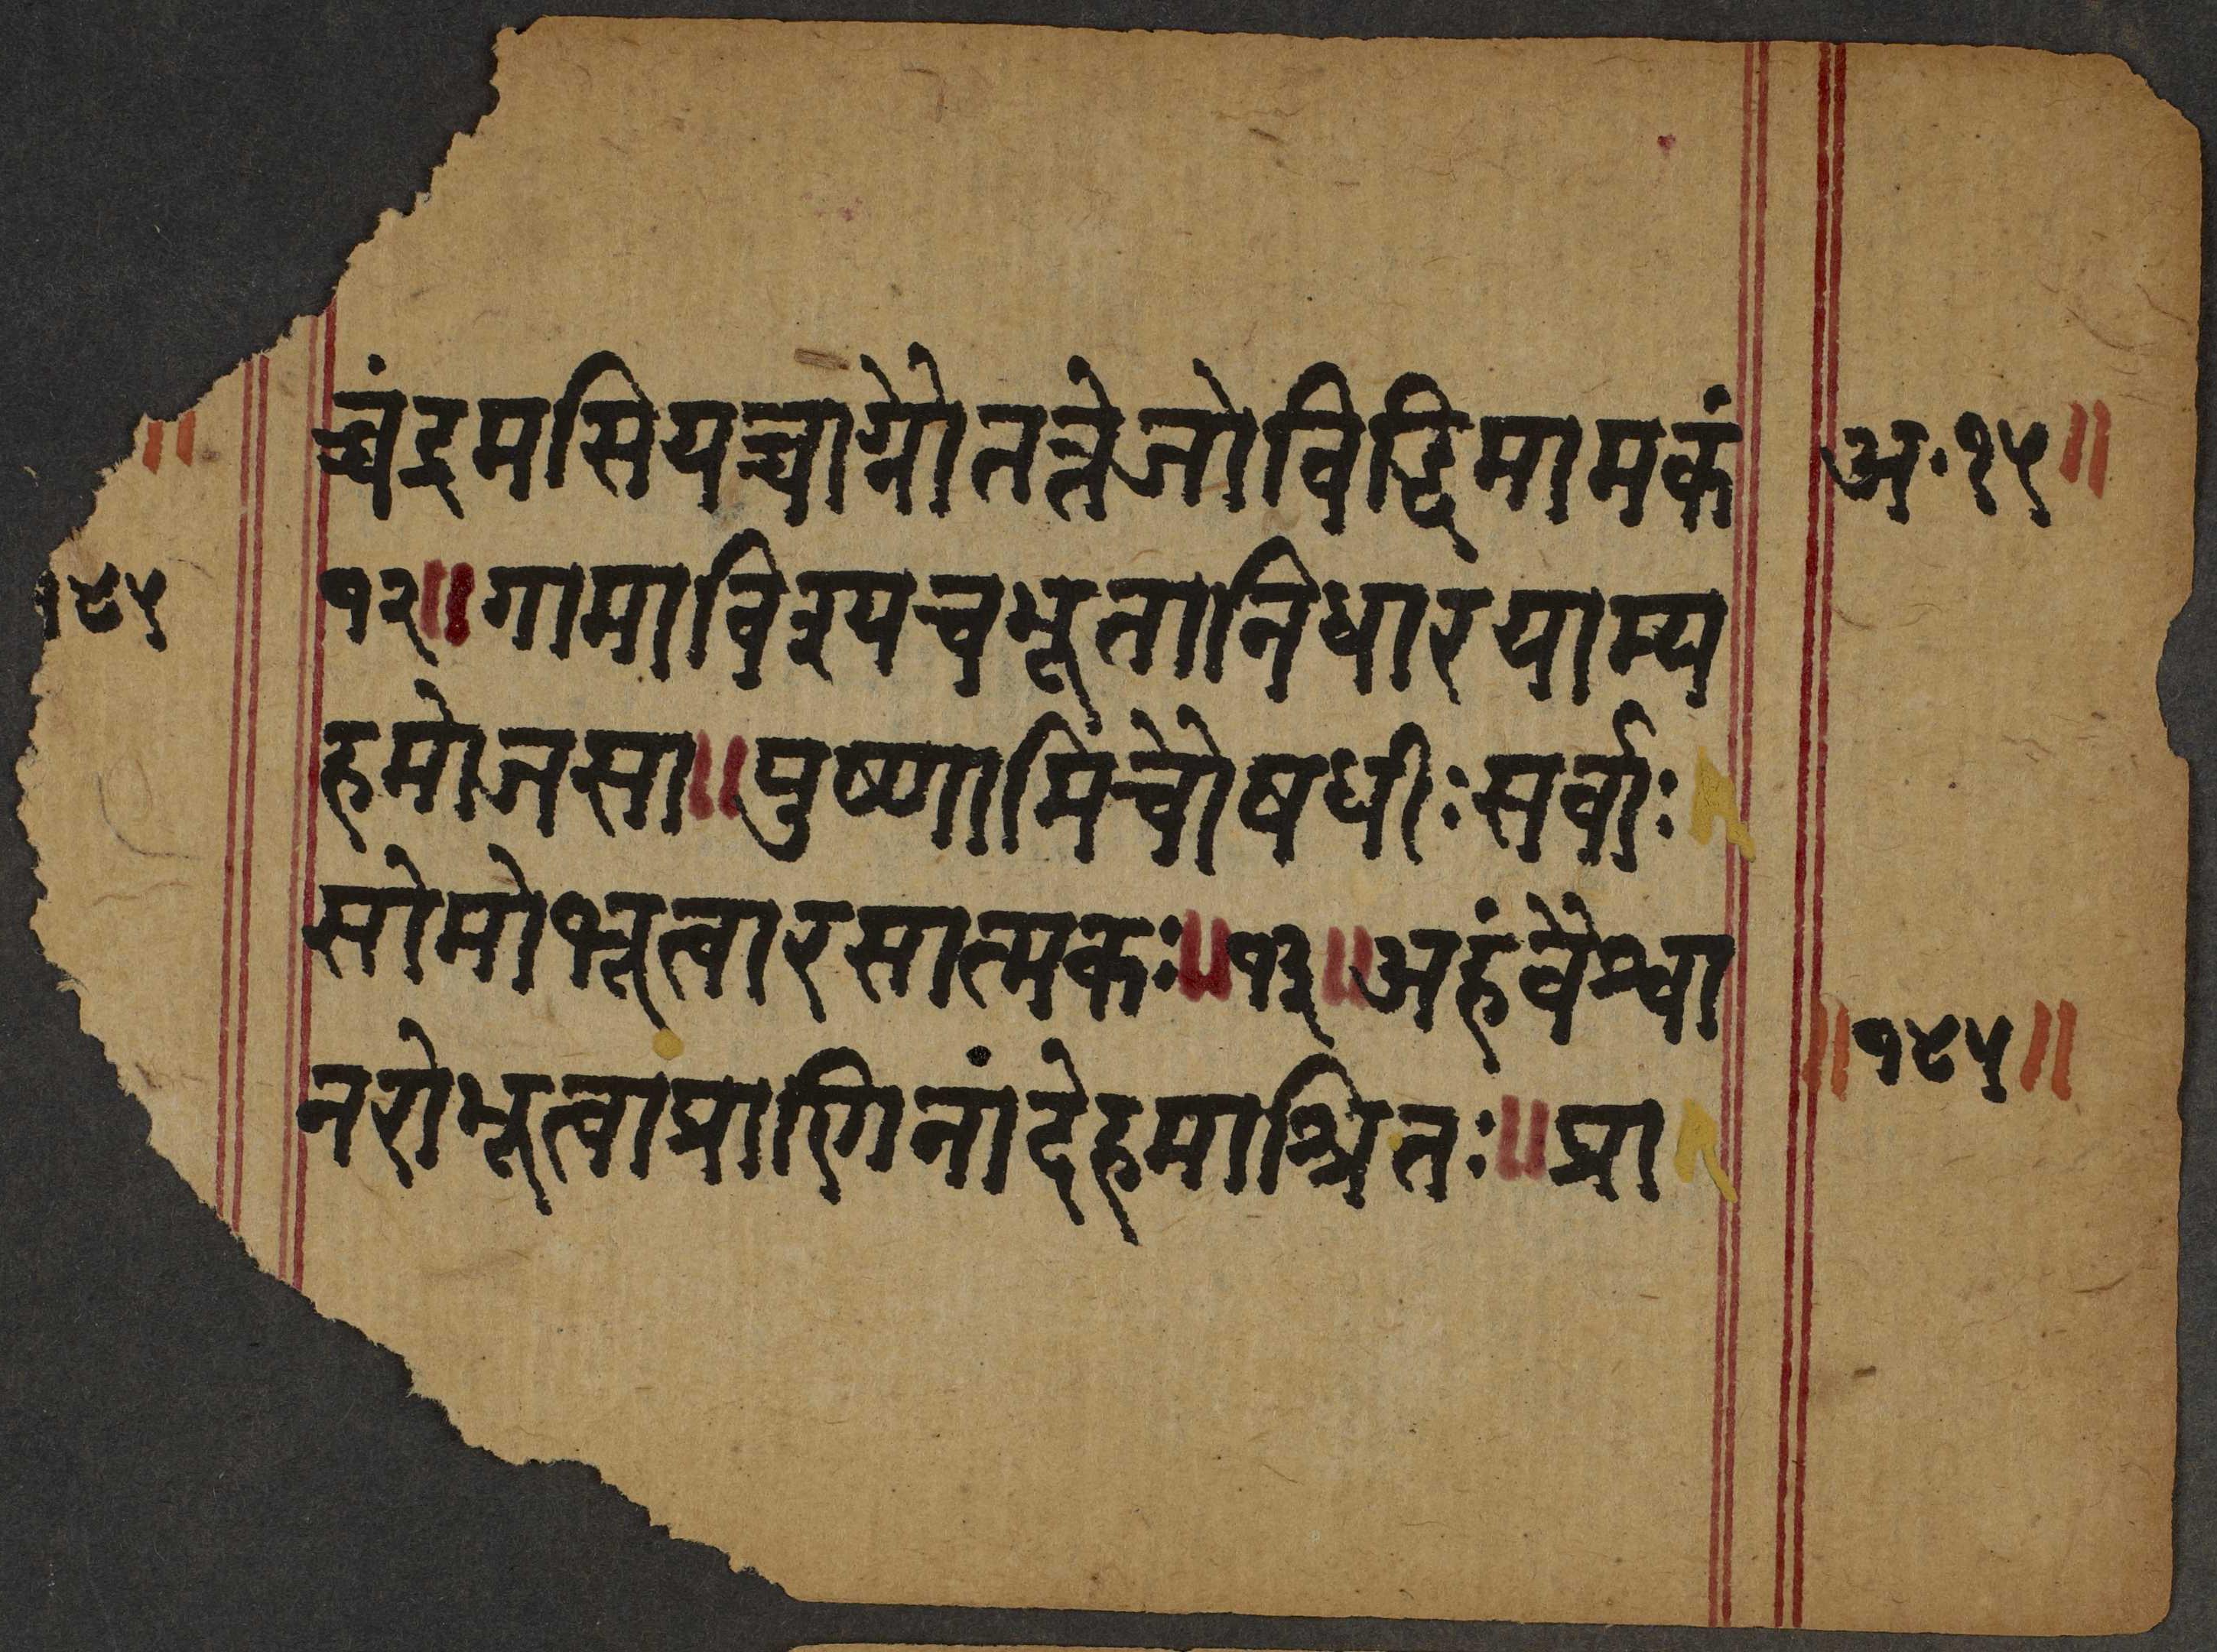 च्चंद्रमसियच्चाग्नौतत्तेजोविद्धिमामकं
१२॥गामाविश्यचभूतानिधारयाम्य
हमोजसा॥पुष्णामिचौषधीःसर्वाः
सोमोभूत्वारसात्मकः॥१३॥अहंवैश्वा
नरोभूत्वाप्राणिनांदेहमाश्रितः॥प्रा
अ॰१५॥
॥१४५॥
॥
१४५